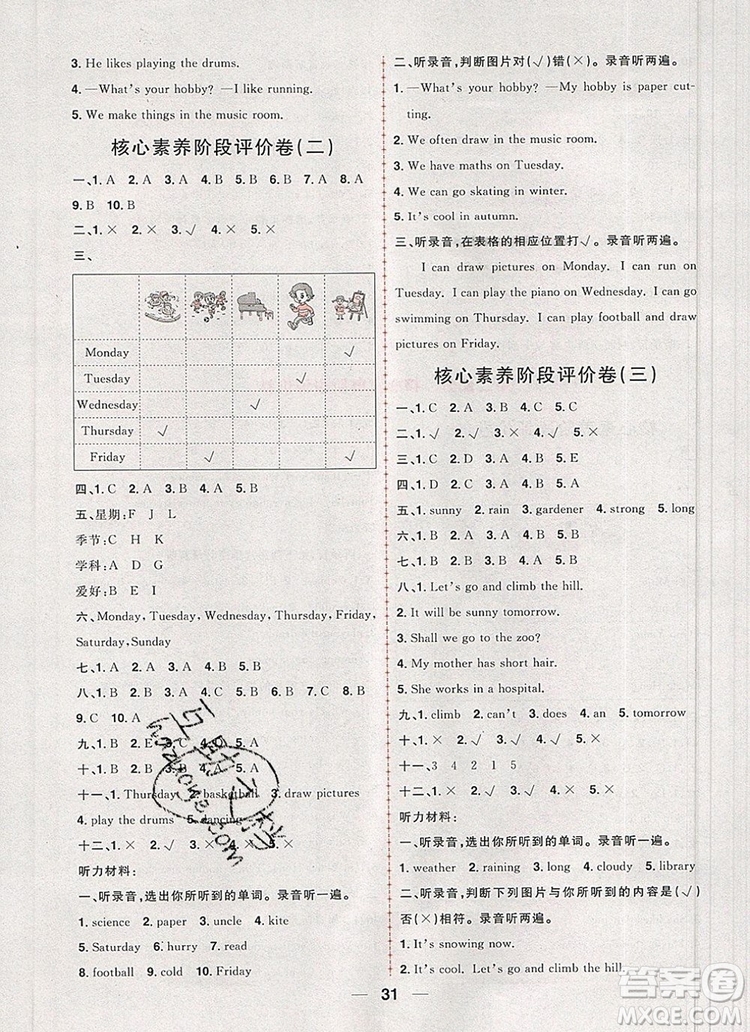 3. He likes playing the drums.
4. —What's your hobby? —I like running.
5. We make things in the music room.
核心素养阶段评价卷(二)
一、1. A 2. A 3. A 4. B 5. B 6. A 7. B 8. A
9. B 10. B
二、1. × 2. × 3. √ 4. × 5. ×
三、
Monday √
Tuesday √
Wednesday √
Thursday √
Friday √ √
四、1. C 2. A 3. B 4. B 5. A
五、星期: F J L
季节: C H K
学科: A D G
爱好: B E I
六、Monday, Tuesday, Wednesday, Thursday, Friday,
Saturday, Sunday
七、1. A 2. B 3. A 4. B 5. A
八、1. B 2. B 3. B 4. C 5. A 6. B 7. C 8. B
9. C 10. A
九、1. B 2. E 3. C 4. D 5. A
十、1. B 2. A 3. B 4. B 5. A
十一、1. Thursday 2. basketball 3. draw pictures
4. play the drums 5. dancing
十二、1. √ 2. × 3. √ 4. × 5. √
听力材料:
一、听录音,选出你所听到的单词。录音听一遍。
1. science 2. paper 3. uncle 4. kite
5. Saturday 6. hurry 7. read
8. football 9. cool 10. Friday
二、听录音,判断图片对(√)错(×)。录音听两遍。
1. —What's your hobby? —My hobby is paper cut-
ting.
2. We often draw in the music room.
3. We have maths on Tuesday.
4. We can go skating in winter.
5. It's cool in autumn.
三、听录音,在表格的相应位置打√。录音听两遍。
I can draw pictures on Monday. I can run on
Tuesday. I can play the piano on Wednesday. I can go
swimming on Thursday. I can play football and draw
pictures on Friday.
核心素养阶段评价卷(三)
一、1. C 2. A 3. B 4. A 5. C
二、1. √ 2. √ 3. × 4. × 5. ×
三、1. C 2. B 3. A 4. B 5. B
四、1. D 2. C 3. A 4. B 5. E
五、1. sunny 2. rain 3. gardener 4. strong 5. long
六、1. B 2. A 3. B 4. B 5. A
七、1. B 2. A 3. C 4. B 5. B
八、1. Let's go and climb the hill.
2. It will be sunny tomorrow.
3. Shall we go to the zoo?
4. My mother has short hair.
5. She works in a hospital.
九、1. climb 2. can't 3. does 4. an 5. tomorrow
十、1. × 2. √ 3. √ 4. × 5. √
十一、3 4 2 1 5
十二、1. × 2. √ 3. √ 4. √ 5. ×
听力材料:
一、听录音,选出你所听到的单词。录音听一遍。
1. weather 2. raining 3. long 4. cloudy 5. library
二、听录音,判断下列图片与你所听到的内容是(√)
否(×)相符。录音听两遍。
1. It's snowing now.
2. It's cool. Let's go and climb the hill.
31
答案圈
MXQE.COM